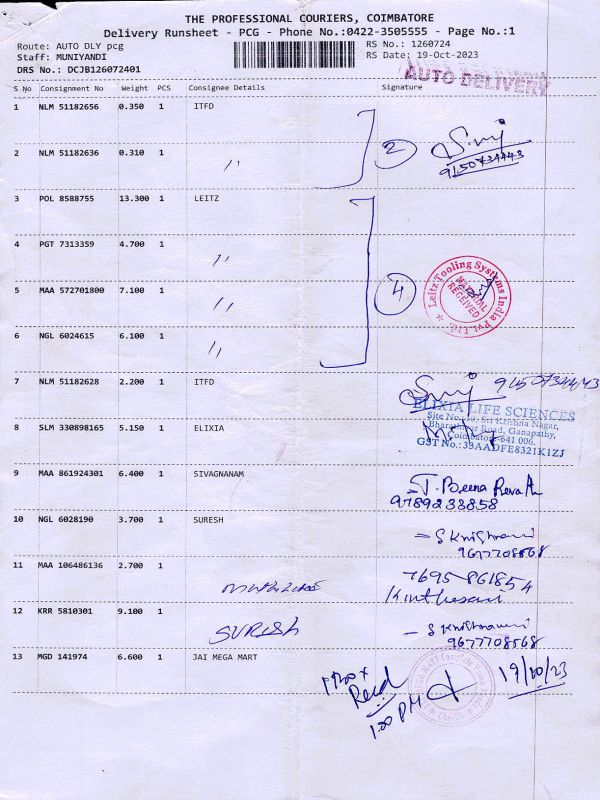 THE PROFESSIONAL COURIERS, COIMBATORE
Delivery Runsheet - PCG - Phone No.:0422-3505555 - Page No.:1
Route: AUTO DLY pcg RS No.: 1260724
Staff: MUNIYANDI RS Date: 19-Oct-2023
DRS No.: DCJB126072401
AUTO DELIVERY
S No Consignment No Weight PCS Consignee Details Signature
1 NLM 51182656 0.350 1 ITFD
2 NLM 51182636 0.310 1 〃 2
9150734443
3 POL 8588755 13.300 1 LEITZ
4 PGT 7313359 4.700 1 〃
Leitz Tooling Systems India Pvt. Ltd.
MATERIAL RECEIVED
5 MAA 572701800 7.100 1 〃 4
6 NGL 6024615 6.100 1 〃
7 NLM 51182628 2.200 1 ITFD
ELIXIA LIFE SCIENCES
8 SLM 330898165 5.150 1 ELIXIA
Bharathiyar Road, Ganapathy,
Coimbatore-641 006.
GST No.:33AADFE8321K1ZJ
9 MAA 861924301 6.400 1 SIVAGNANAM
9789233858
10 NGL 6028190 3.700 1 SURESH
9677708568
11 MAA 106486136 2.700 1
12 KRR 5810301 9.100 1 SURESH
9677708568
13 MGD 141974 6.600 1 JAI MEGA MART
Recd
1.30 PM
19/10/23